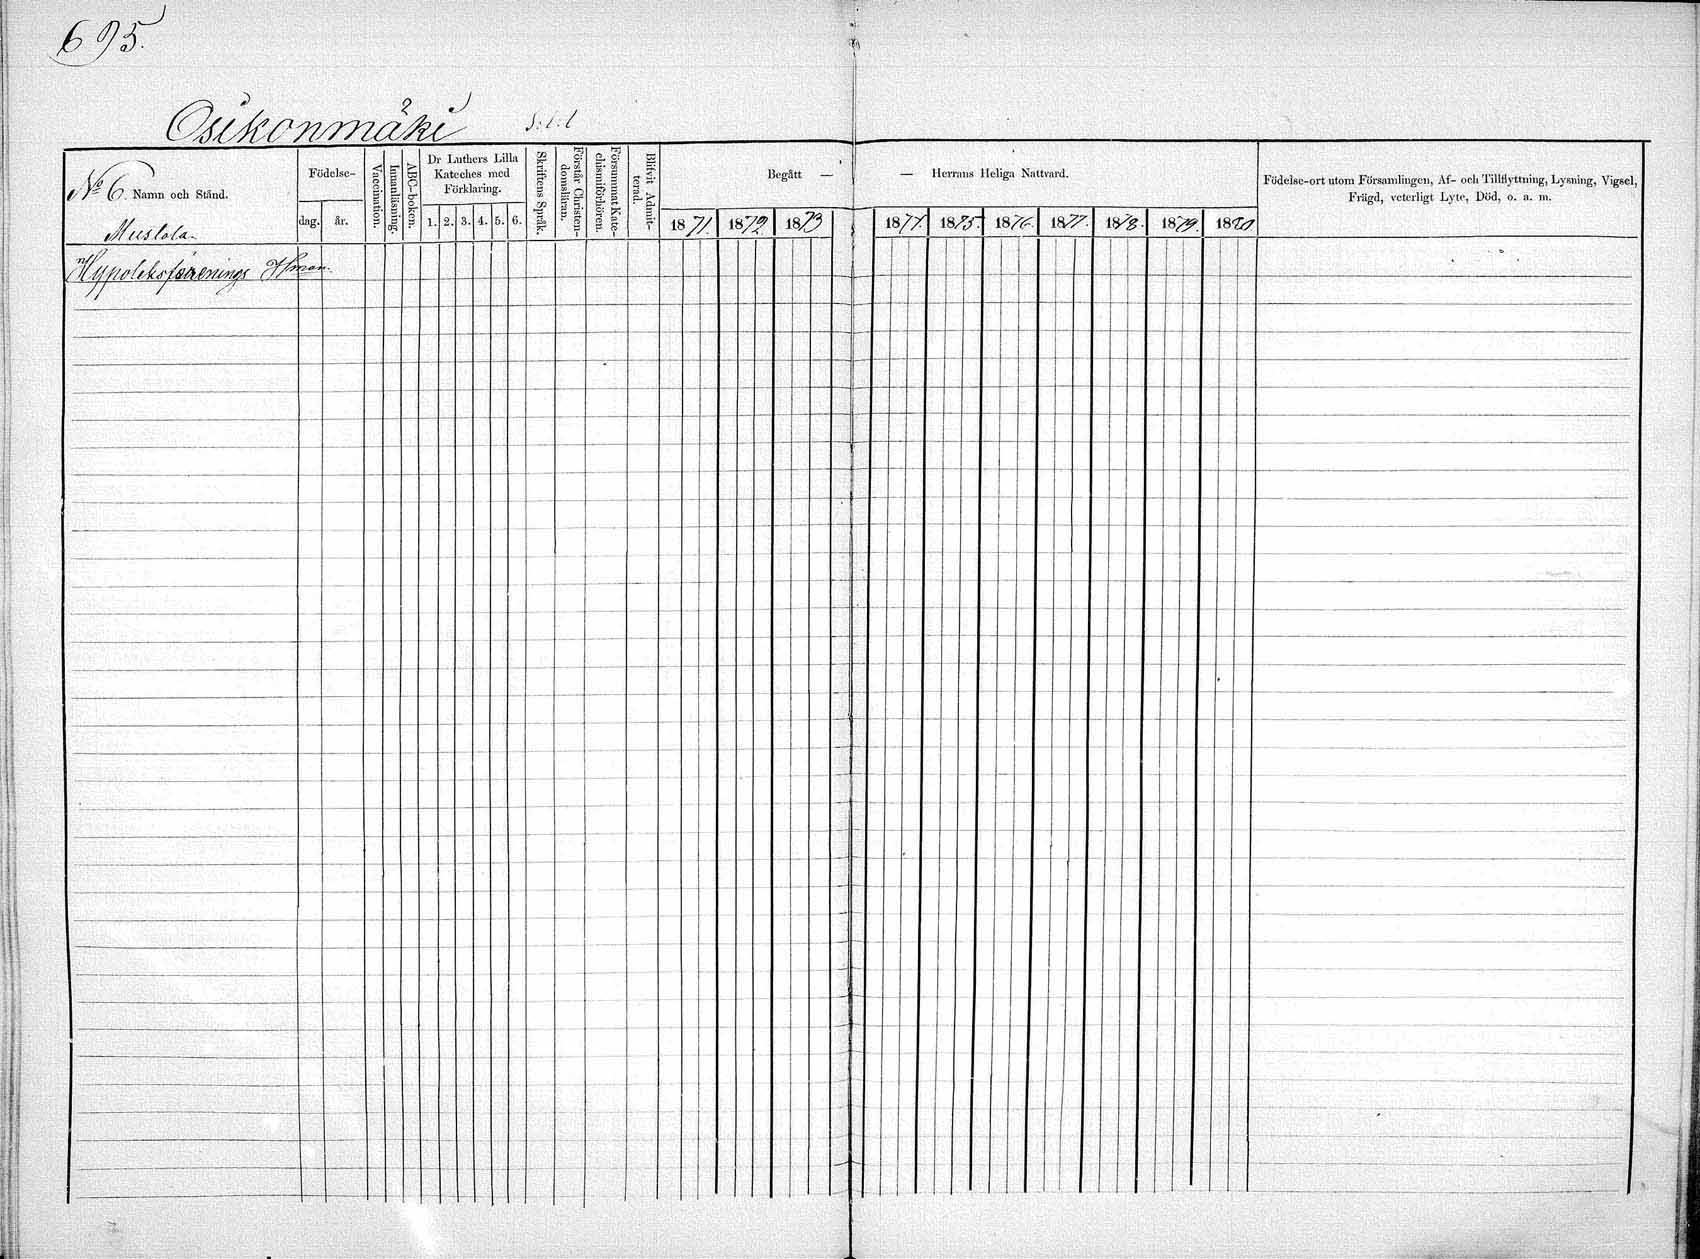 695.
Osikonmäki
No 6 Namn och Stånd.
Mustola.
Födelse-
dag. år.
Vaccination.
Innanläsning.
ABC-boken.
Dr Luthers Lilla
Kateches med
Förklaring.
1. 2. 3. 4. 5. 6.
Skriftens Språk.
Förstår Christen-
domsläran.
Försummat Kate-
chismiförhören.
Blifvit Admit-
terad.
Begått — — Herrans Heliga Nattvard.
1871. 1872 1873 1874. 1875. 1876. 1877. 1878. 1879. 1880
Födelse-ort utom Församlingen, Af- och Tillflyttning, Lysning, Vigsel,
Frägd, veterligt Lyte, Död, o. a. m.
Hypoteksförenings Hman.